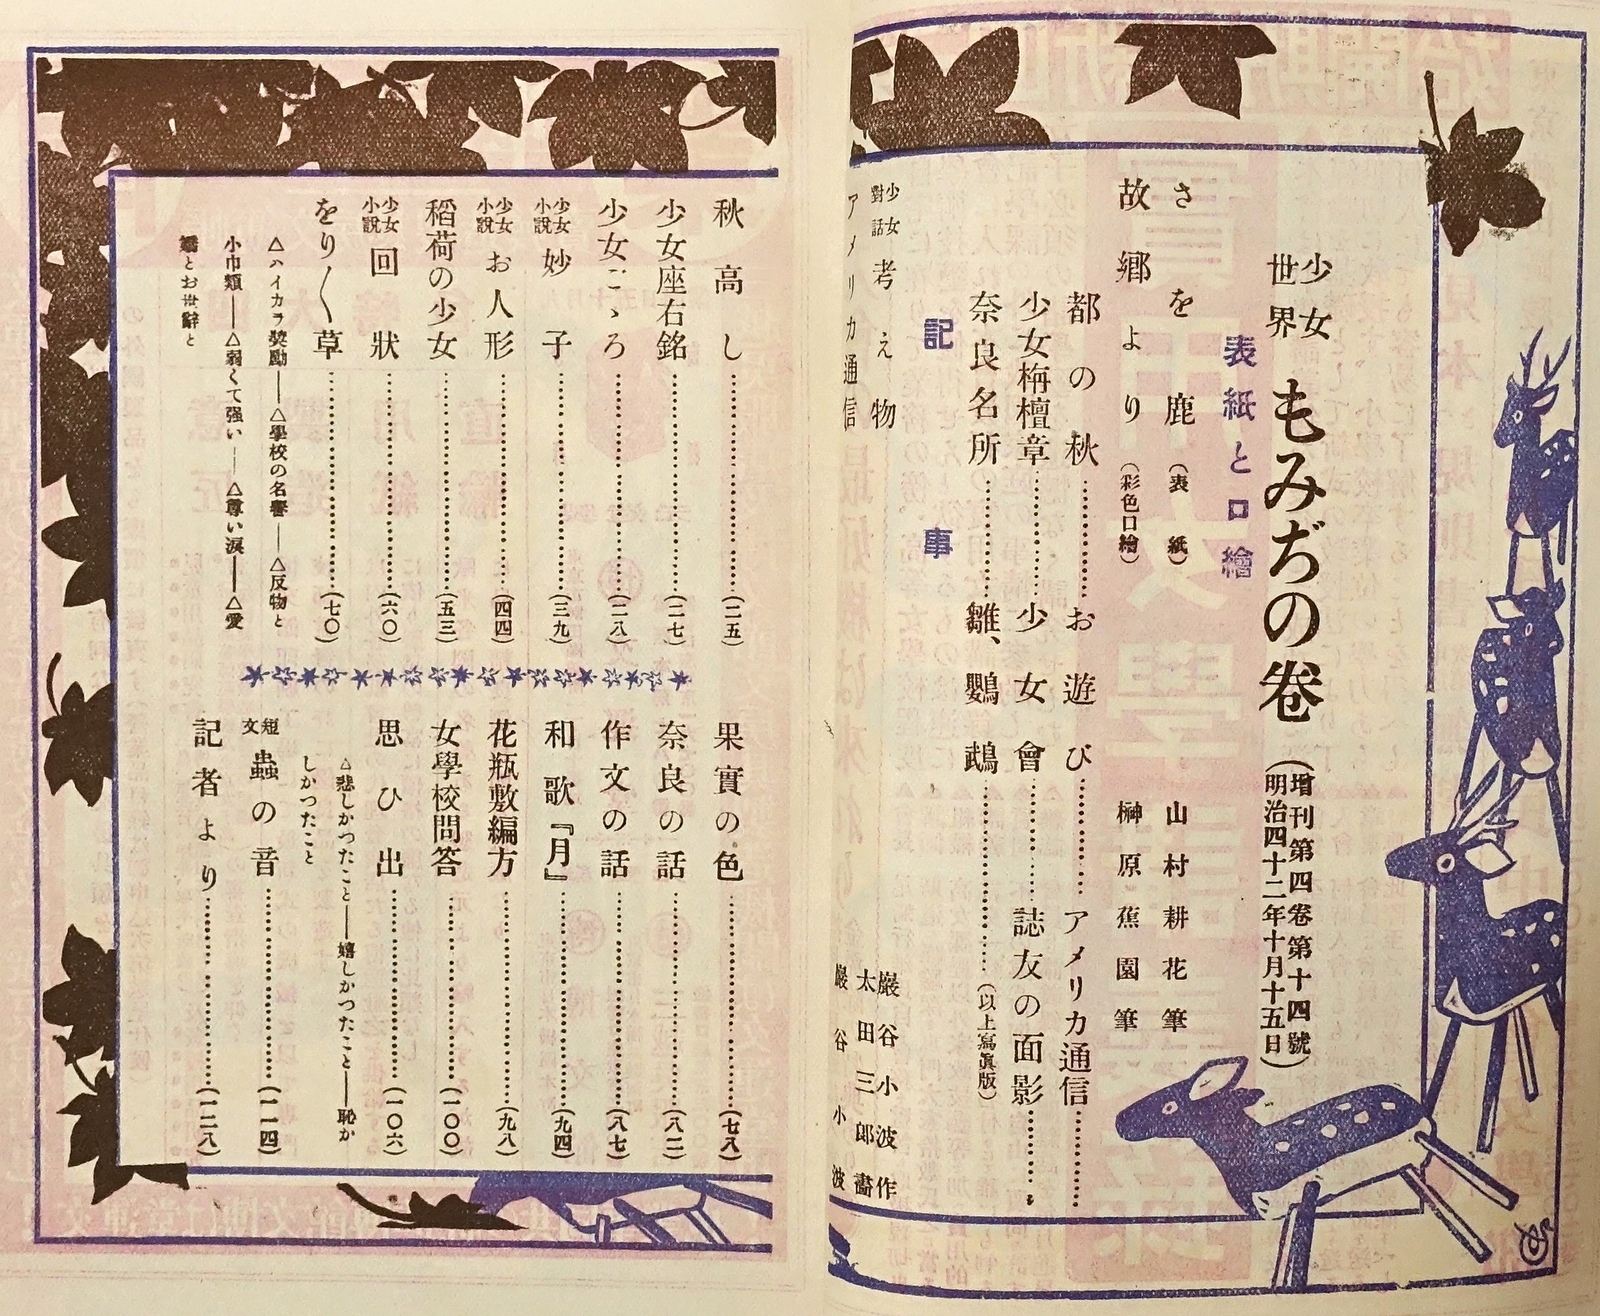 少女世界 もみぢの卷 (增刊第四卷第十四號 明治四十二年十月十五日)
表紙と口繪
さを鹿 (表紙) 山村耕花筆
故郷より (彩色口繪) 榊原蕉園筆
都の秋……お遊び……アメリカ通信……
少女栴檀章……少女會……誌友の面影……
奈良名所……雛、鸚鵡……(以上寫眞版)
記事
少女對話 考え物 巖谷小波作 太田三郎畵
アメリカ通信 巖谷小波
秋高し……(二五)
少女座右銘……(二七)
少女こゝろ……(二八)
少女小說 妙子……(三九)
少女小說 お人形……(四四)
稻荷の少女……(五三)
少女小說 回狀……(六〇)
をり〱草……(七〇)
△ハイカラ獎勵——△學校の名譽——△反物と
小巾類——△弱くて强い——△尊い淚——△愛
嬌とお世辭と
果實の色……(七八)
奈良の話……(八二)
作文の話……(八七)
和歌『月』……(九四)
花瓶敷編方……(九八)
女學校問答……(一〇〇)
思ひ出……(一〇六)
△悲しかつたこと——嬉しかつたこと——恥か
しかつたこと
短文 蟲の音……(一一四)
記者より……(一二八)